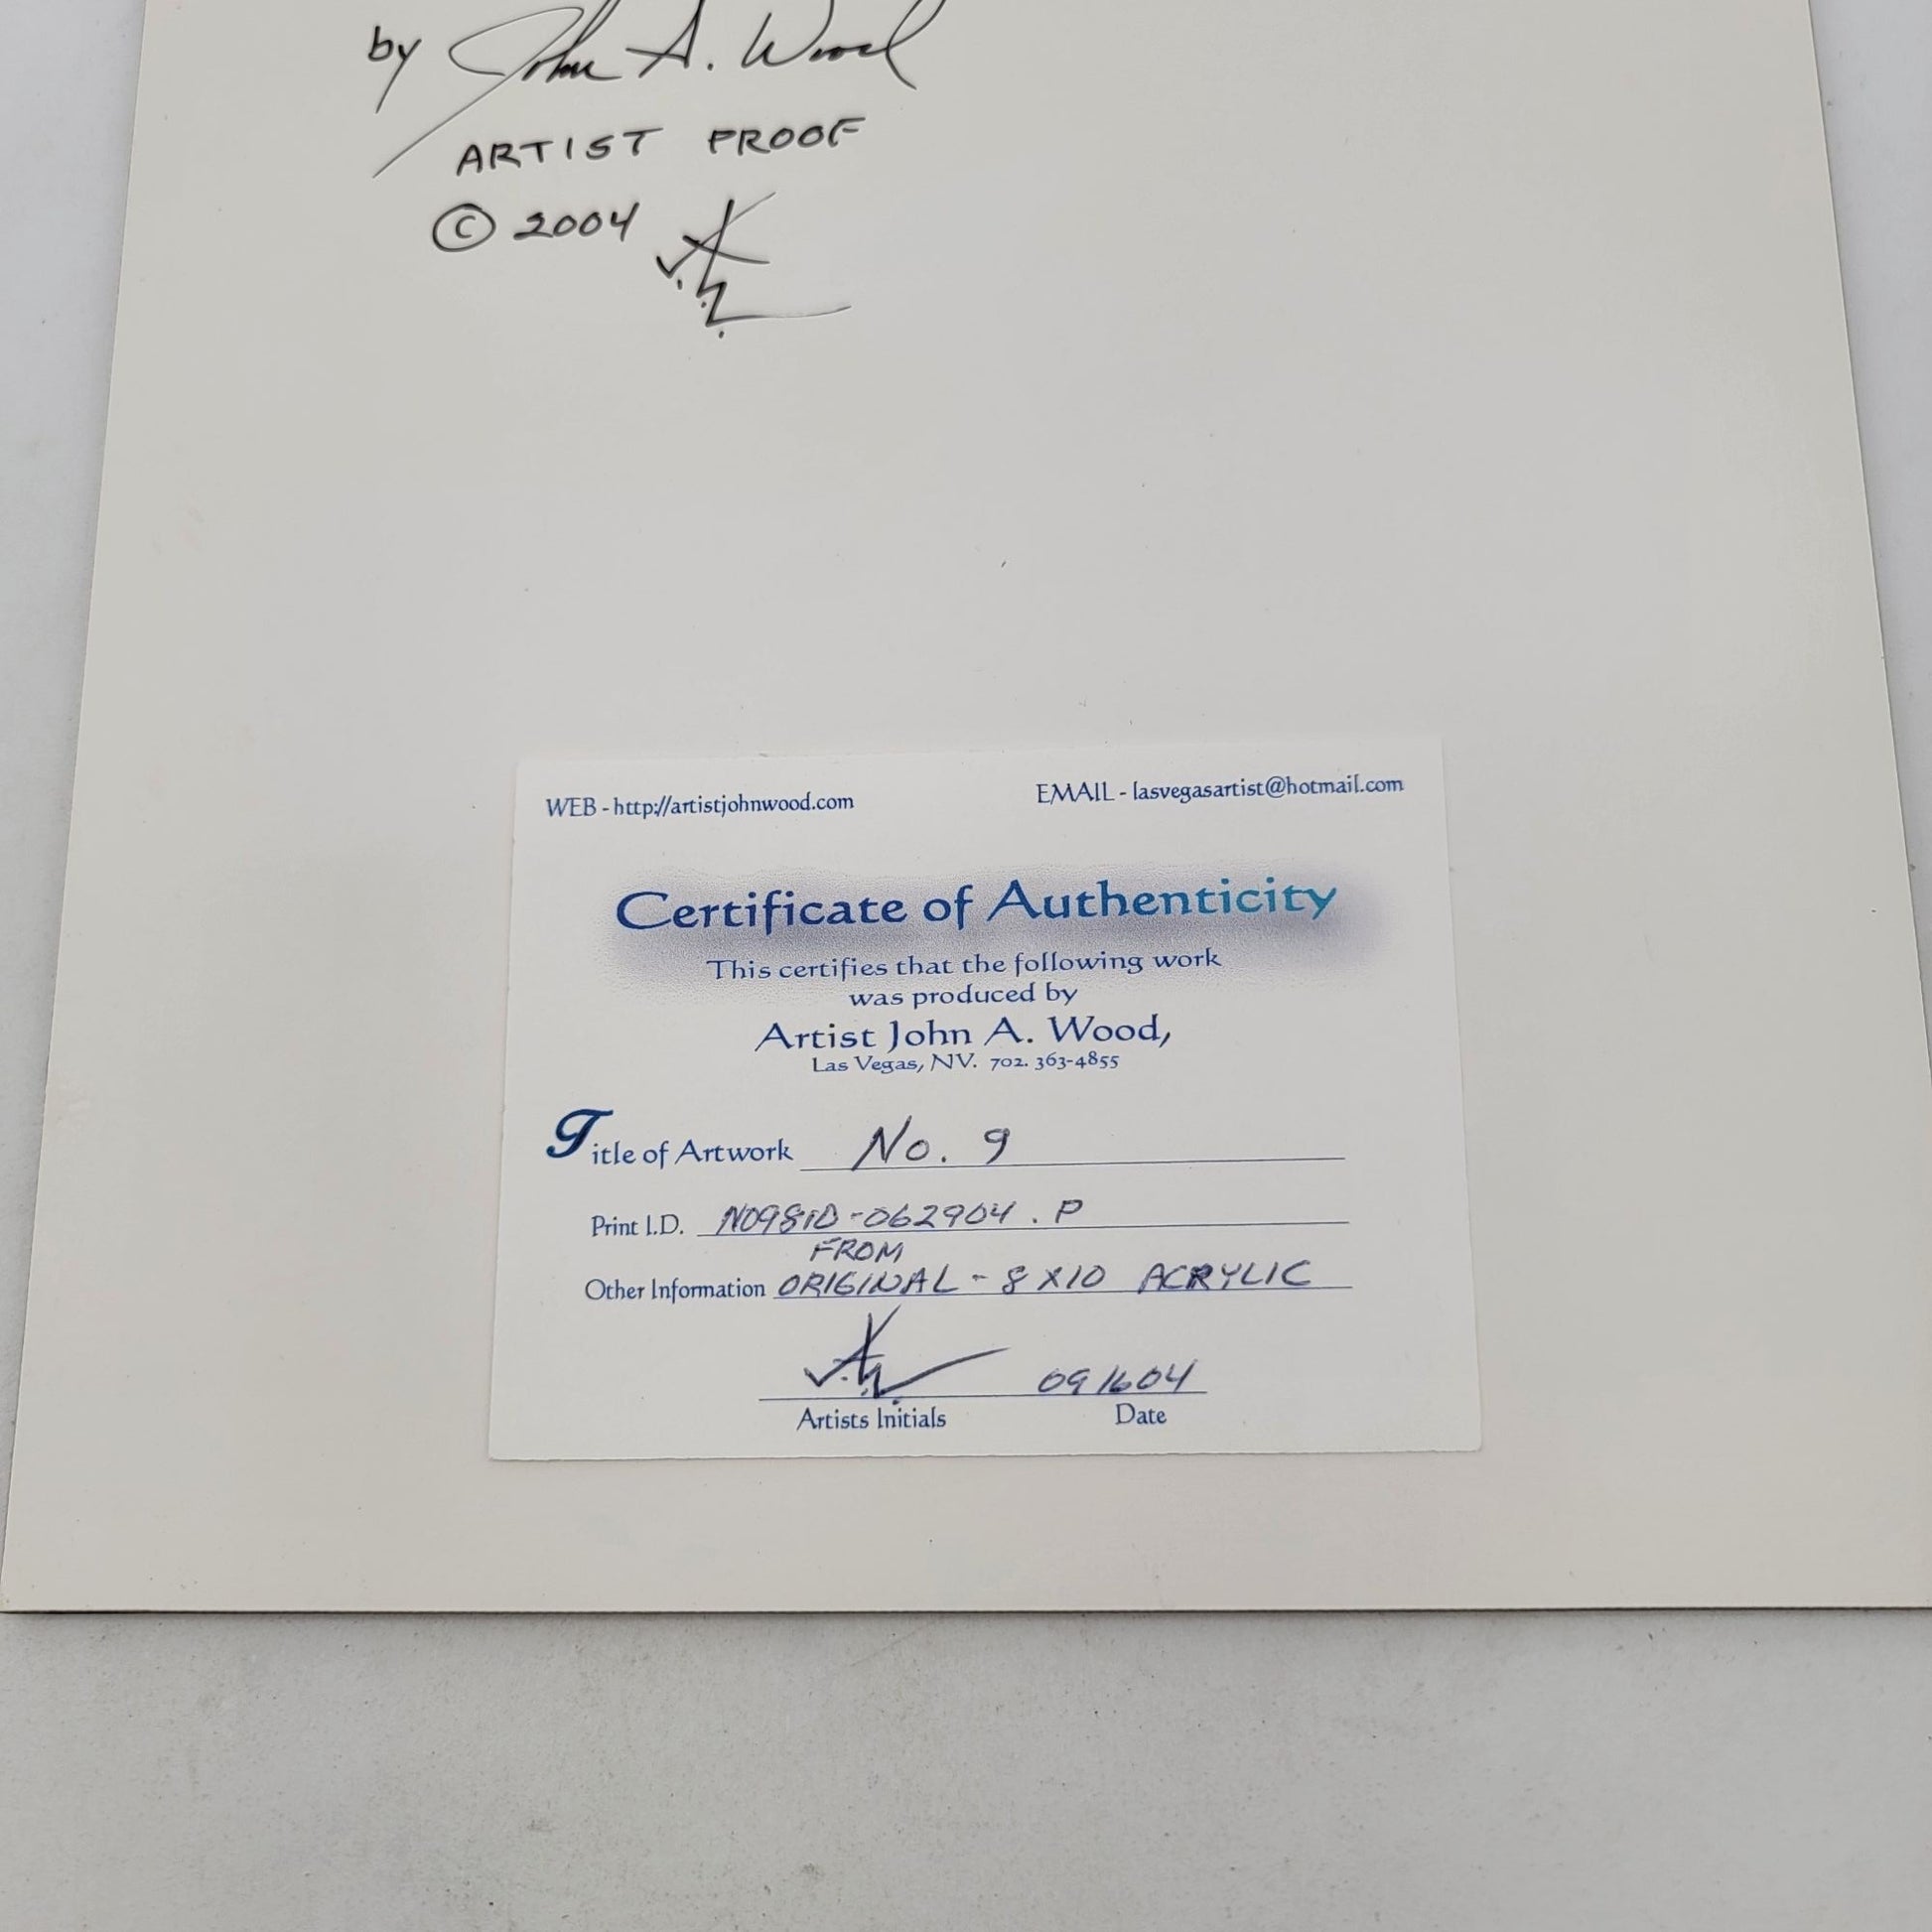 by John A. Wood
ARTIST PROOF
© 2004
WEB - http://artistjohnwood.com
EMAIL - lasvegasartist@hotmail.com
Certificate of Authenticity
This certifies that the following work
was produced by
Artist John A. Wood,
Las Vegas, NV. 702. 363-4855
Title of Artwork No. 9
Print I.D. NO981D-062904.P
FROM
Other Information ORIGINAL - 8 X10 ACRYLIC
091604
Artists Initials Date